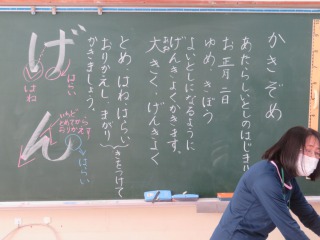 かきぞめ
あたらしいとしのはじまり
お正月 二日
ゆめ きぼう
よいとしになるように
げんきよくかきます。
大きく、げんきよく
おお
とめ はね はらい
おりかえし まがり
きをつけて
かきましょう。
げ
はらい
はね
ん
いちど
とめてから
おりかえす
はらい